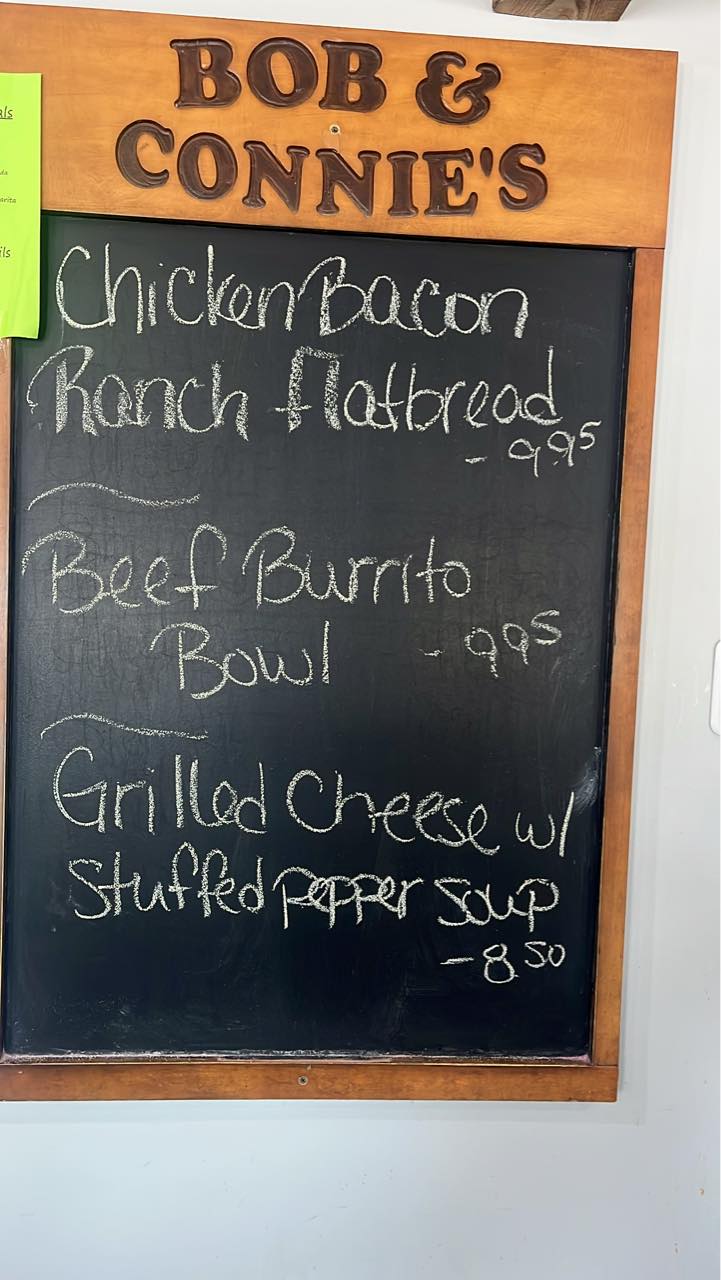 BOB &
CONNIE'S
als
da
arita
ils
Chicken Bacon
Ranch flatbread
- 9.95
Beef Burrito
Bowl - 9.95
Grilled Cheese w/
Stuffed pepper soup
- 8.50